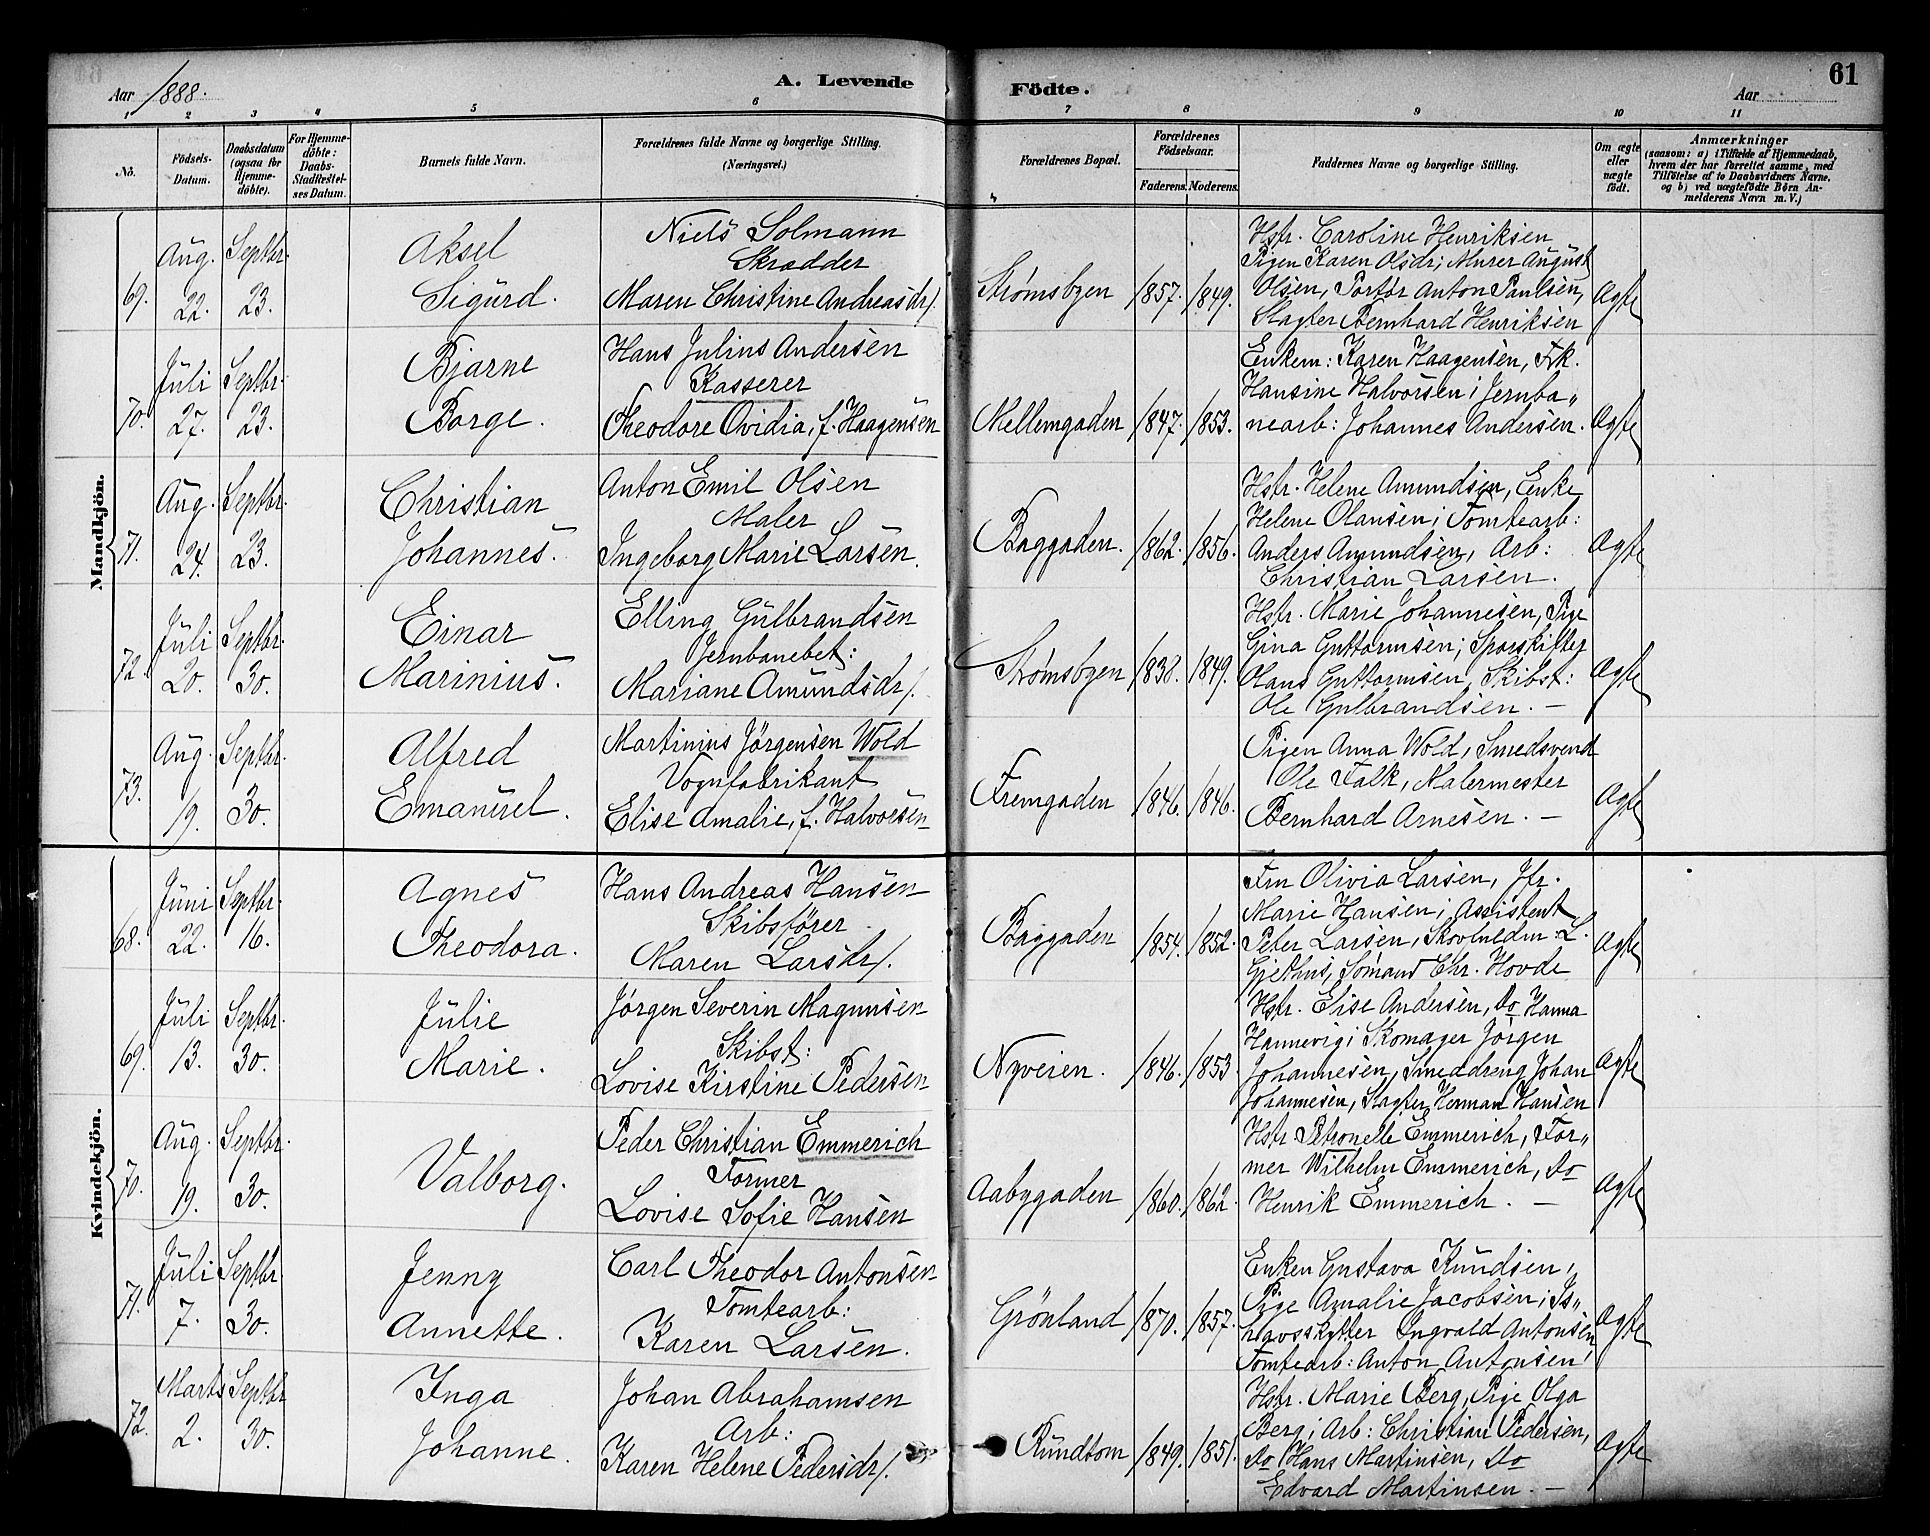 Aar 1888. A. Levende Födte. Aar 61
1 2 3 4 5 6 7 8 9 10 11
No. Födsels-Datum. Daabsdatum (ogsaa for Hjemme-döbte). For Hjemme-döbte: Daabs-Stadfæstelses Datum. Barnets fulde Navn. Forældrenes fulde Navne og borgerlige Stilling. (Næringsvei.) Forældrenes Bopæl. Forældrenes Födselsaar. Faderens. Moderens. Faddernes Navne og borgerlige Stilling. Om ægte eller uægte födt. Anmærkninger (saasom: a) i Tilfælde af Hjemmedaab, hvem der har forrettet samme, med Tilföielse af to Daabsvidners Navne, og b) ved uægtefödte Börn Anmelderens Navn m. V.)
Mandkjön.
69. Aug. 22. Septbr. 23. Aksel Sigurd.
Niels Solmann
Skrædder
Maren Christine Andreasdr/.
Strømsbyen 1857. 1849.
Hstr. Caroline Henriksen
Pigen Karen Olsdr; Murer August
Olsen, Portør Anton Paulsen,
Slagter Bernhard Henriksen
Ægte
70. Juli 27. Septbr. 23. Bjarne Borge.
Hans Julius Andersen
Kasserer
Theodore Ovidia, f. Haagensen
Mellemgaden 1847. 1853.
Enkem: Karen Haagensen, Frk.
Hansine Halvorsen; Jernba„
nearb: Johannes Andersen.
Ægte
71. Aug. 24. Septbr. 23. Christian Johannes.
Anton Emil Olsen
Maler
Ingeborg Marie Larsen.
Baggaden. 1862. 1856.
Hstr. Helene Amundsen, Enke
Helene Olansen; Tomtearb:
Anders Amundsen, Arb:
Christian Larsen.
Ægte
72. Juli 20. Septbr. 30. Einar Marinius.
Elling Gulbrandsen
Jernbanebet:
Mariane Amundsdr/.
Strømsbyen 1838. 1849.
Hstr. Marie Johannesen, Pige
Gina Guttormsen; Sporskifter
Olaus Guttormsen, Skibst:
Ole Gulbrandsen. —
Ægte
73. Aug. 19. Septbr. 30. Alfred Emanuel.
Martinius Jörgensen Wold
Vognfabrikant
Elise Amalie, f. Halvorsen
Fremgaden 1846. 1846.
Pigen Anna Wold, Smedsvend
Ole Falk, Malermester
Bernhard Arnesen. —
Ægte
Kvindekjön.
68. Juni 22. Septbr. 16. Agnes Theodora.
Hans Andreas Hansen
Skibsfører
Maren Larsdr/.
Baggaden 1854. 1852.
Fru Olivia Larsen, Jfr.
Marie Hansen; Assistent
Peter Larsen, L.
Gjethus, Sömand Chr. Hovde
Ægte
69. Juli 13. Septbr. 30. Julie Marie.
Jørgen Severin Magnusen
Skibst:
Lovise Kirstine Pedersen
Nyveien. 1846. 1853.
Hstr. Elise Andersen, do Hanna
Hannevig; Skomager Jørgen
Johannesen, Smeddreng Johan
Johannesen, Slagter Herman Hansen
Ægte
70. Aug. 19. Septbr. 30. Valborg.
Peder Christian Emmerich
Former
Lovise Sofie Hansen
Aabygaden 1860. 1862.
Hstr Petronelle Emmerich, For„
mer Wilhelm Emmerich, do
Henrik Emmerich. —
Ægte
71. Juli 7. Septbr. 30. Jenny Annette.
Carl Theodor Antonsen
Tomtearb:
Karen Larsen.
Grönland 1870. 1857.
Enken Gustava Knudsen,
Pige Amalie Jacobsen; Is„
havsskytter Ingvald Antonsen
Tomtearb: Anton Antonsen
Ægte
72. Marts 2. Septbr 30. Inga Johanne.
Johan Abrahamsen
Arb:
Karen Helene Pedersdr/.
Rundtom 1849. 1851.
Hstr. Marie Berg, Pige Olga
Berg; Arb: Christian Pedersen,
do Hans Martinsen, do
Edvard Martinsen. —
Ægte